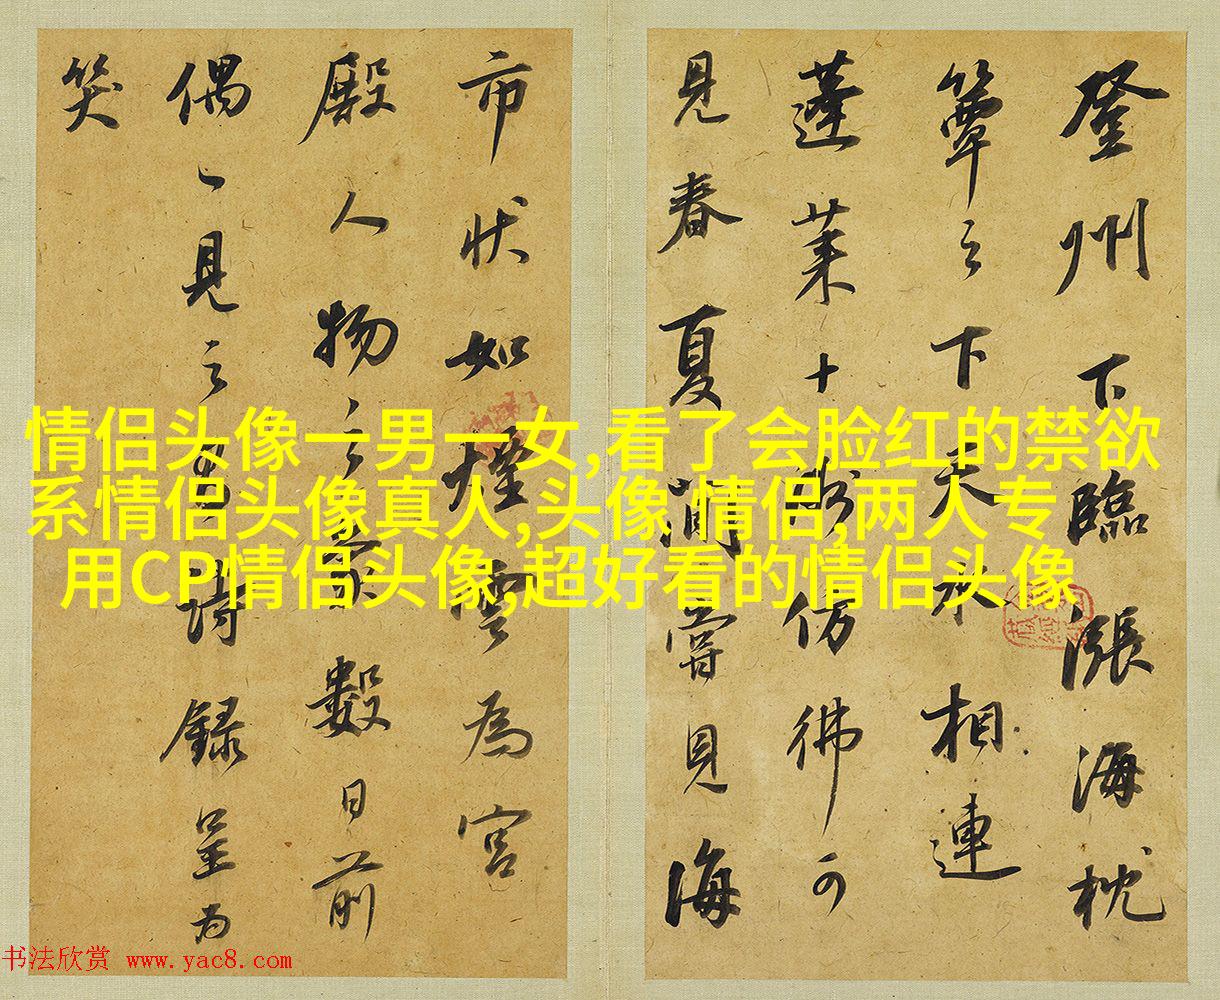 登州下臨漲海枕
簟之下天水相連
蓬莱十数仿彿可
見春夏間嘗見海
市状如煙雲為宮
殿人物之象數日前
偶一見之有詩錄呈为
笑
情侣头像一男一女,看了会脸红的禁欲
系情侣头像真人,头像 情侣,两人专
用CP情侣头像,超好看的情侣头像
书法欣赏 www.yac8.com